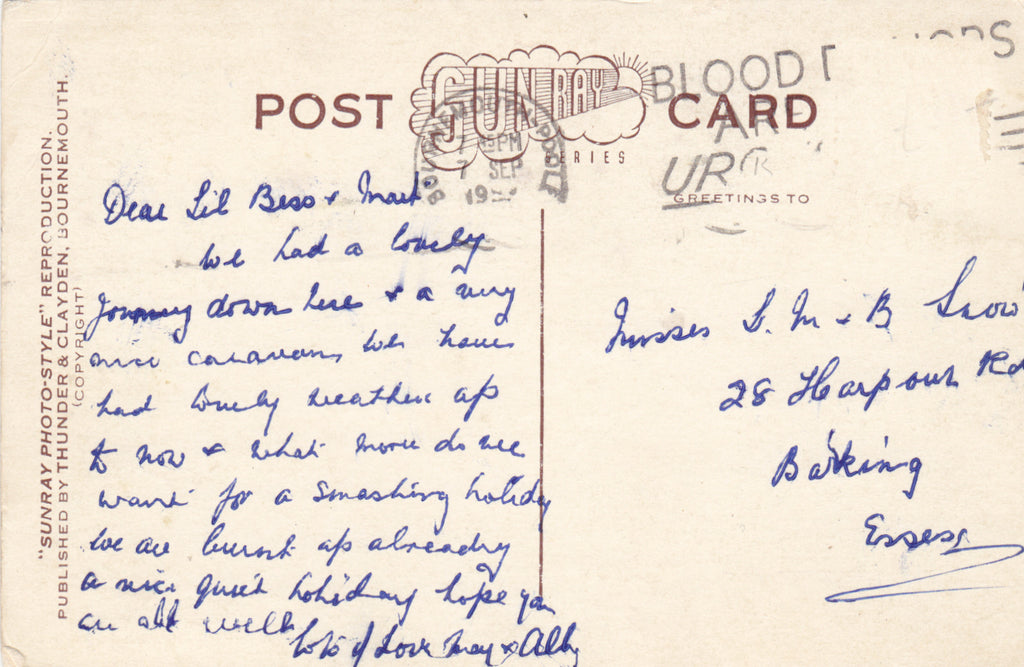 POST CARD
SUN RAY
SERIES
BOURNEMOUTH-POOLE
7 45PM
7 SEP
19
BLOOD
AR
UR
GREETINGS TO
"SUNRAY PHOTO-STYLE" REPRODUCTION.
PUBLISHED BY THUNDER & CLAYDEN, BOURNEMOUTH.
(COPYRIGHT)
Dear Lil Bess + Mart
We had a lovely
journey down here & a very
nice caravan, We have
had lovely weather up
to now & what more do we
want for a smashing holiday
We are burnt up already
a nice quiet holiday hope you
are all well
lots of Love May & Alby
Misses L. M + B Snow
28 Harpour Rd
Barking
Essex